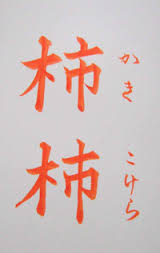 柿 かき
杮 こけら